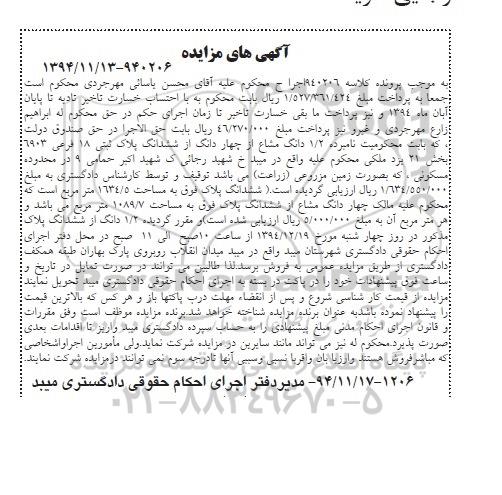 آگهی های مزایده
۱۳۹۴/۱۱/۱۳-۹۴۰۲۰۶
به موجب پرونده کلاسه ۹۴۰۲۰۶اجرا ج محکوم علیه آقای محسن یاسائی مهرجردی محکوم است
جمعاً به پرداخت مبلغ ۱/۵۲۷/۳۶۱/۴۲۴ ریال بابت محکوم به با احتساب خسارت تاخیر تادیه تا پایان
آبان ماه ۱۳۹۴ و نیز پرداخت ما بقی خسارت تاخیر تا زمان اجرای حکم در حق محکوم له ابراهیم
زارع مهرجردی و غیرو نیز پرداخت مبلغ ۴۶/۲۷۰/۰۰۰ ریال بابت حق الاجرا در حق صندوق دولت
، که بابت محکومیت نامبرده ۱/۲ دانگ مشاع از چهار دانگ از ششدانگ پلاک ثبتی ۱۸ فرعی ۶۹۰۳
بخش ۲۱ یزد ملکی محکوم علیه واقع در میبد خ شهید رجائی ک شهید اکبر حمامی ۹ در محدوده
مسکونی ، که بصورت زمین مزروعی (زراعت) می باشد توقیف و توسط کارشناس دادگستری به مبلغ
۱/۶۳۴/۵۵۰/۰۰۰ ریال ارزیابی گردیده است.( ششدانگ پلاک فوق به مساحت ۱۶۳۴/۵ متر مربع است که
محکوم علیه مالک چهار دانگ مشاع از ششدانگ پلاک فوق به مساحت ۱۰۸۹/۷ متر مربع می باشد و
هر متر مربع آن به مبلغ ۵/۰۰۰/۰۰۰ ریال ارزیابی شده است)و مقرر گردیده ۱/۲ دانگ از ششدانگ پلاک
مذکور در روز چهار شنبه مورخ ۱۳۹۴/۱۲/۱۹ از ساعت ۱۰صبح الی ۱۱ صبح در محل دفتر اجرای
احکام حقوقی دادگستری شهرستان میبد واقع در میبد میدان انقلاب روبروی پارک بهاران طبقه همکف
دادگستری از طریق مزایده عمومی به فروش برسد.لذا طالبین می توانند در صورت تمایل در تاریخ و
ساعت فوق پیشنهادات خود را در پاکت در بسته به اجرای احکام حقوقی دادگستری میبد تحویل نمایند
مزایده از قیمت کار شناسی شروع و پس از انقضاء مهلت درب پاکتها باز و هر کس که بالاترین قیمت
را پیشنهاد نموده باشدبه عنوان برنده مزایده شناخته خواهد شد.برنده مزایده موظف است وفق مقررات
و قانون اجرای احکام مدنی مبلغ پیشنهادی را به حساب سپرده دادگستری میبد واریز تا اقدامات بعدی
صورت پذیرد.محکوم له نیز می تواند مانند سایرین در مزایده شرکت نماید.ولی مأمورین اجراواشخاصی
که مباشرفروش هستند وارزیابان واقربا نسبی وسببی آنها تادرجه سوم نمی توانند درمزایده شرکت نمایند.
۹۴/۱۱/۱۷-۱۲۰۶- مدیردفتر اجرای احکام حقوقی دادگستری میبد
۰۲۱-۸۸۳۴۹۶۷۰-۵